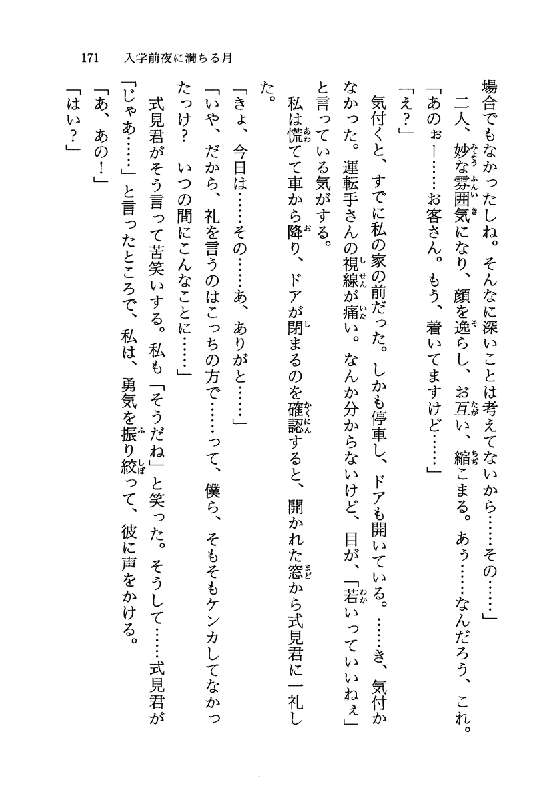 171　入学前夜に満ちる月
場合でもなかったしね。そんなに深いことは考えてないから……その……」
　二人、妙な雰囲気になり、顔を逸らし、お互い、縮こまる。あぅ……なんだろう、これ。
「あのぉー……お客さん。もう、着いてますけど……」
「え？」
　気付くと、すでに私の家の前だった。しかも停車し、ドアも開いている。……き、気付か
なかった。運転手さんの視線が痛い。なんか分からないけど、目が、「若いっていいねぇ」
と言っている気がする。
　私は慌てて車から降り、ドアが閉まるのを確認すると、開かれた窓から式見君に一礼し
た。
「きょ、今日は……その……あ、ありがと……」
「いや、だから、礼を言うのはこっちの方で……って、僕ら、そもそもケンカしてなかっ
たっけ？　いつの間にこんなことに……」
　式見君がそう言って苦笑いする。私も「そうだね」と笑った。そうして……式見君が
「じゃあ……」と言ったところで、私は、勇気を振り絞って、彼に声をかける。
「あ、あの！」
「はい？」